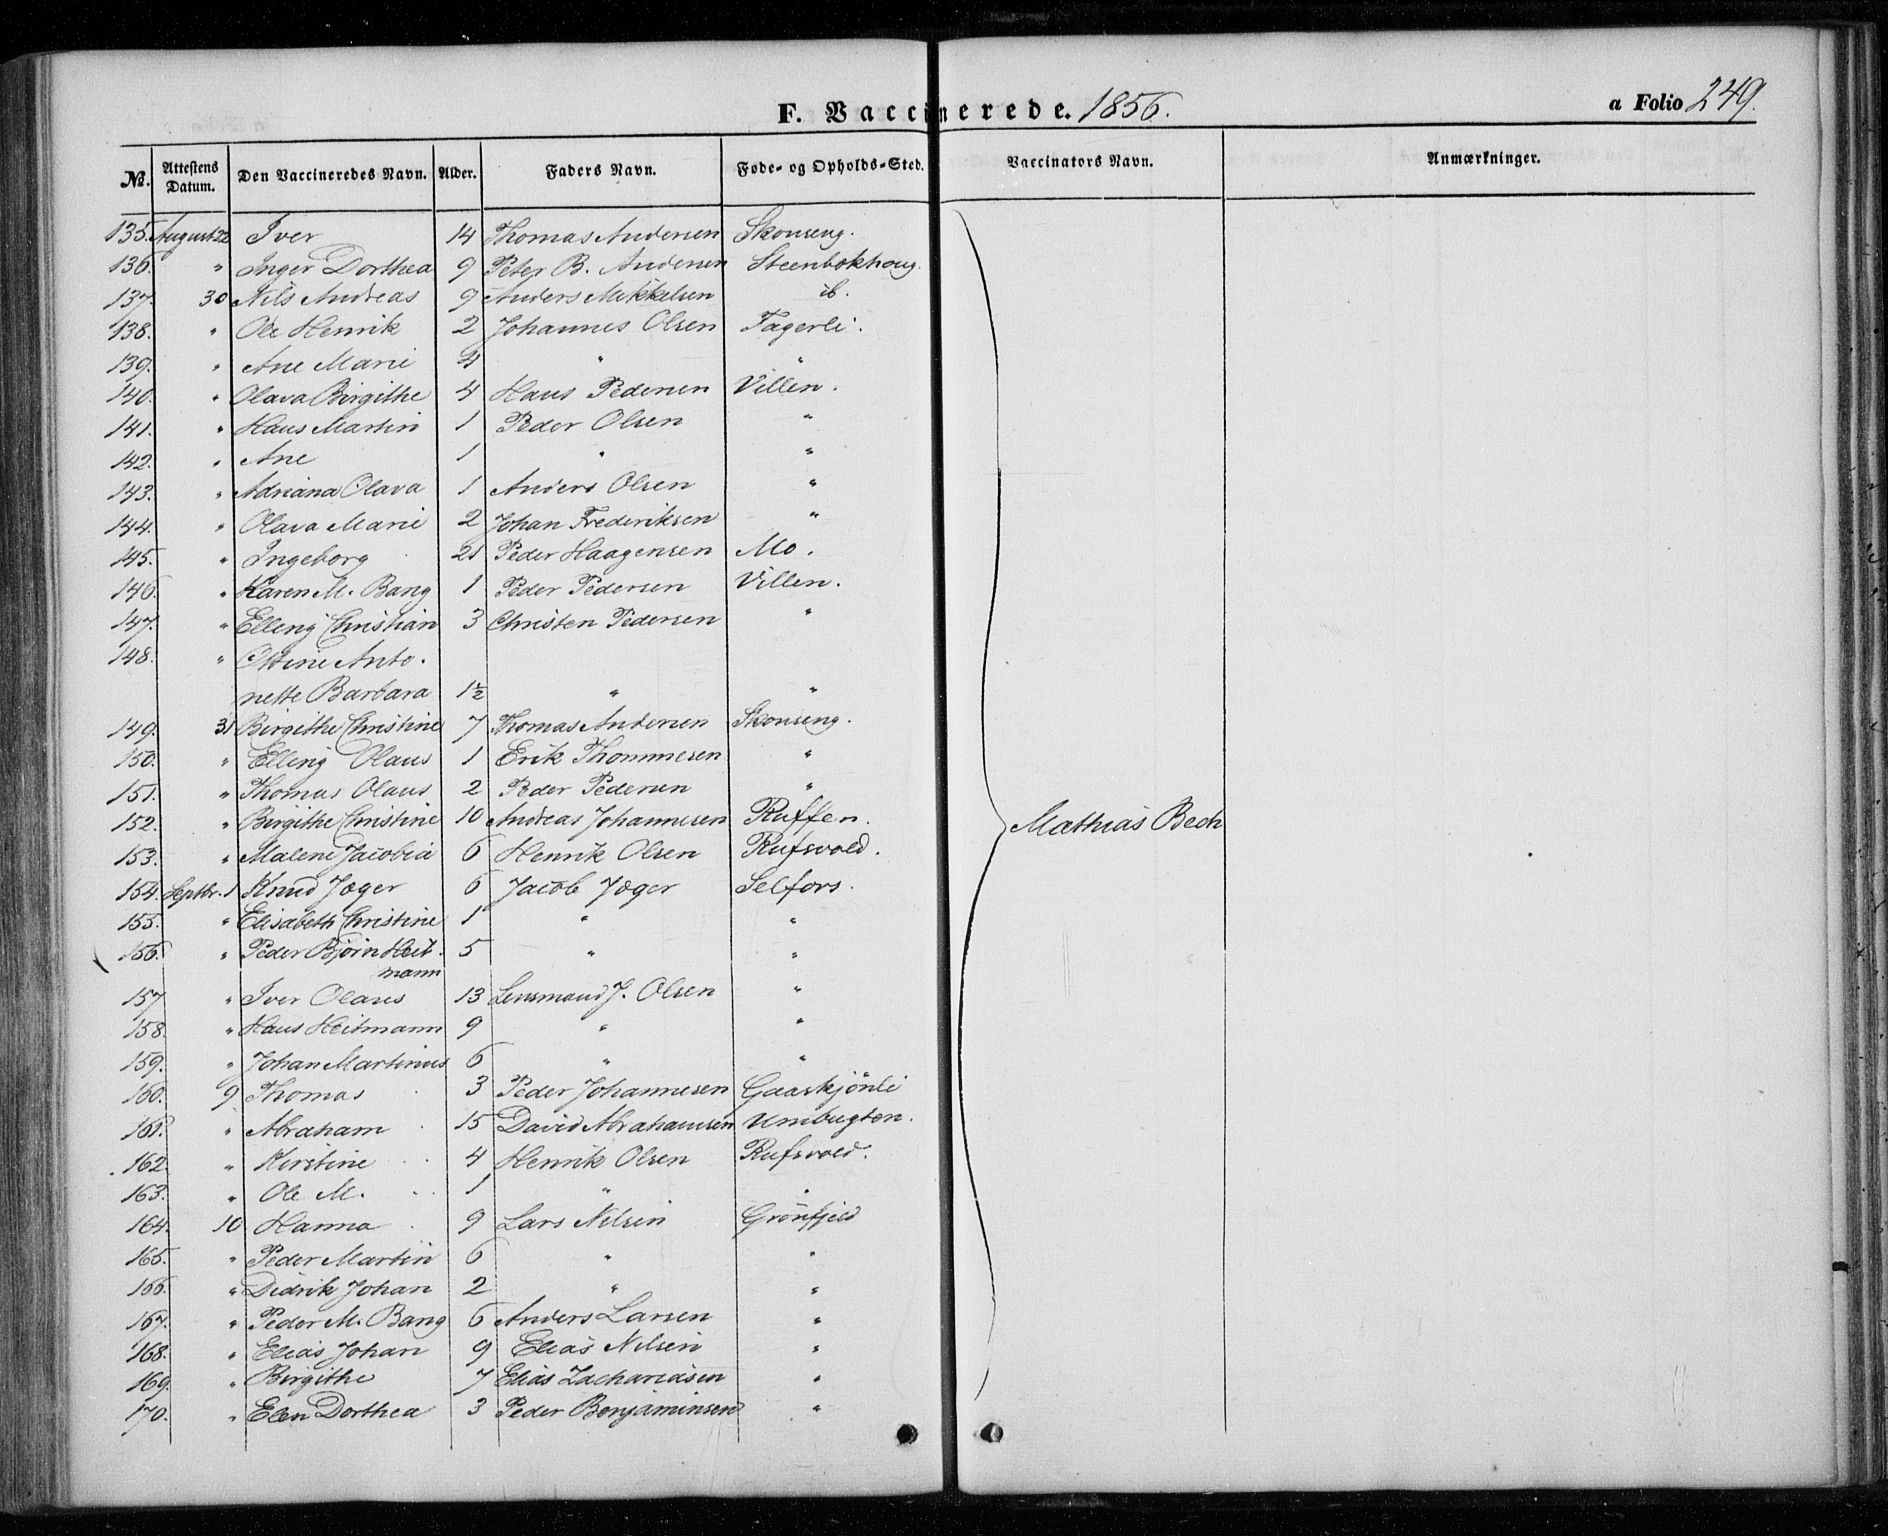 F. Vaccinerede. 1856.
a Folio 249.
No. Attestens Datum. Den Vaccineredes Navn. Alder. Faders Navn. Føde- og Opholds-Sted. Vaccinators Navn. Anmærkninger.
135. August 22 Iver 14 Thomas Andersen Skonseng.
136. " Inger Dorthea 9 Peter B. Andersen Steenbokhoug.
137. 30 Nils Andreas 9 Anders Mikkelsen ib.
138. " Ole Henrik 2 Johannes Olsen Fagerli.
139. " Ane Marie 4 " "
140. " Olava Birgithe 4 Hans Pedersen Villen.
141. " Hans Martin 1 Peder Olsen "
142. " Ane 1 " "
143. " Adriana Olava 1 Anders Olsen "
144. " Olava Marie 2 Johan Frederiksen "
145. " Ingeborg 21 Peder Haagensen Mo.
146. " Karen M. Bang 1 Peder Pedersen Villen.
147. " Elling Christian 3 Christen Pedersen "
148. " Ottine Anto-
nette Barbara 1½ " "
149. 31 Birgithe Christine 7 Thomas Andersen Skonseng.
150. " Elling Olaus 1 Erik Thommesen "
151. " Thomas Olaus 2 Peder Pedersen "
152. " Birgithe Christine 10 Andreas Johannesen Ruffen. Mathias Bech
153. " Malene Jacobia 6 Henrik Olsen Rufsvold.
154. Septbr. 1 Knud Jæger 6 Jacob Jæger Selfors.
155. " Elisabeth Christine 1 " "
156. " Peder Bjørn Heit- 5 " "
mann
157 " Iver Olaus 13 Lensmand J. Olsen "
158. " Hans Heitmann 9 " "
159. " Johan Martinus 6 " "
160. 9 Thomas 3 Peder Johannesen Gaaskjönli
161. " Abraham 15 David Abrahamsen Umbugten.
162. " Kirstine 4 Henrik Olsen Rufsvold.
163. " Ole M. 1 " "
164. 10 Hanna 9 Lars Nilsen Grönfjeld
165. " Peder Martin 6 " "
166. " Didrik Johan 2 " "
167. " Peder M. Bang 6 Anders Larsen "
168. " Elias Johan 9 Elias Nilsen "
169. " Birgithe 7 Elias Zachariasen "
170. " Elen Dorthea 3 Peder Benjaminsen "